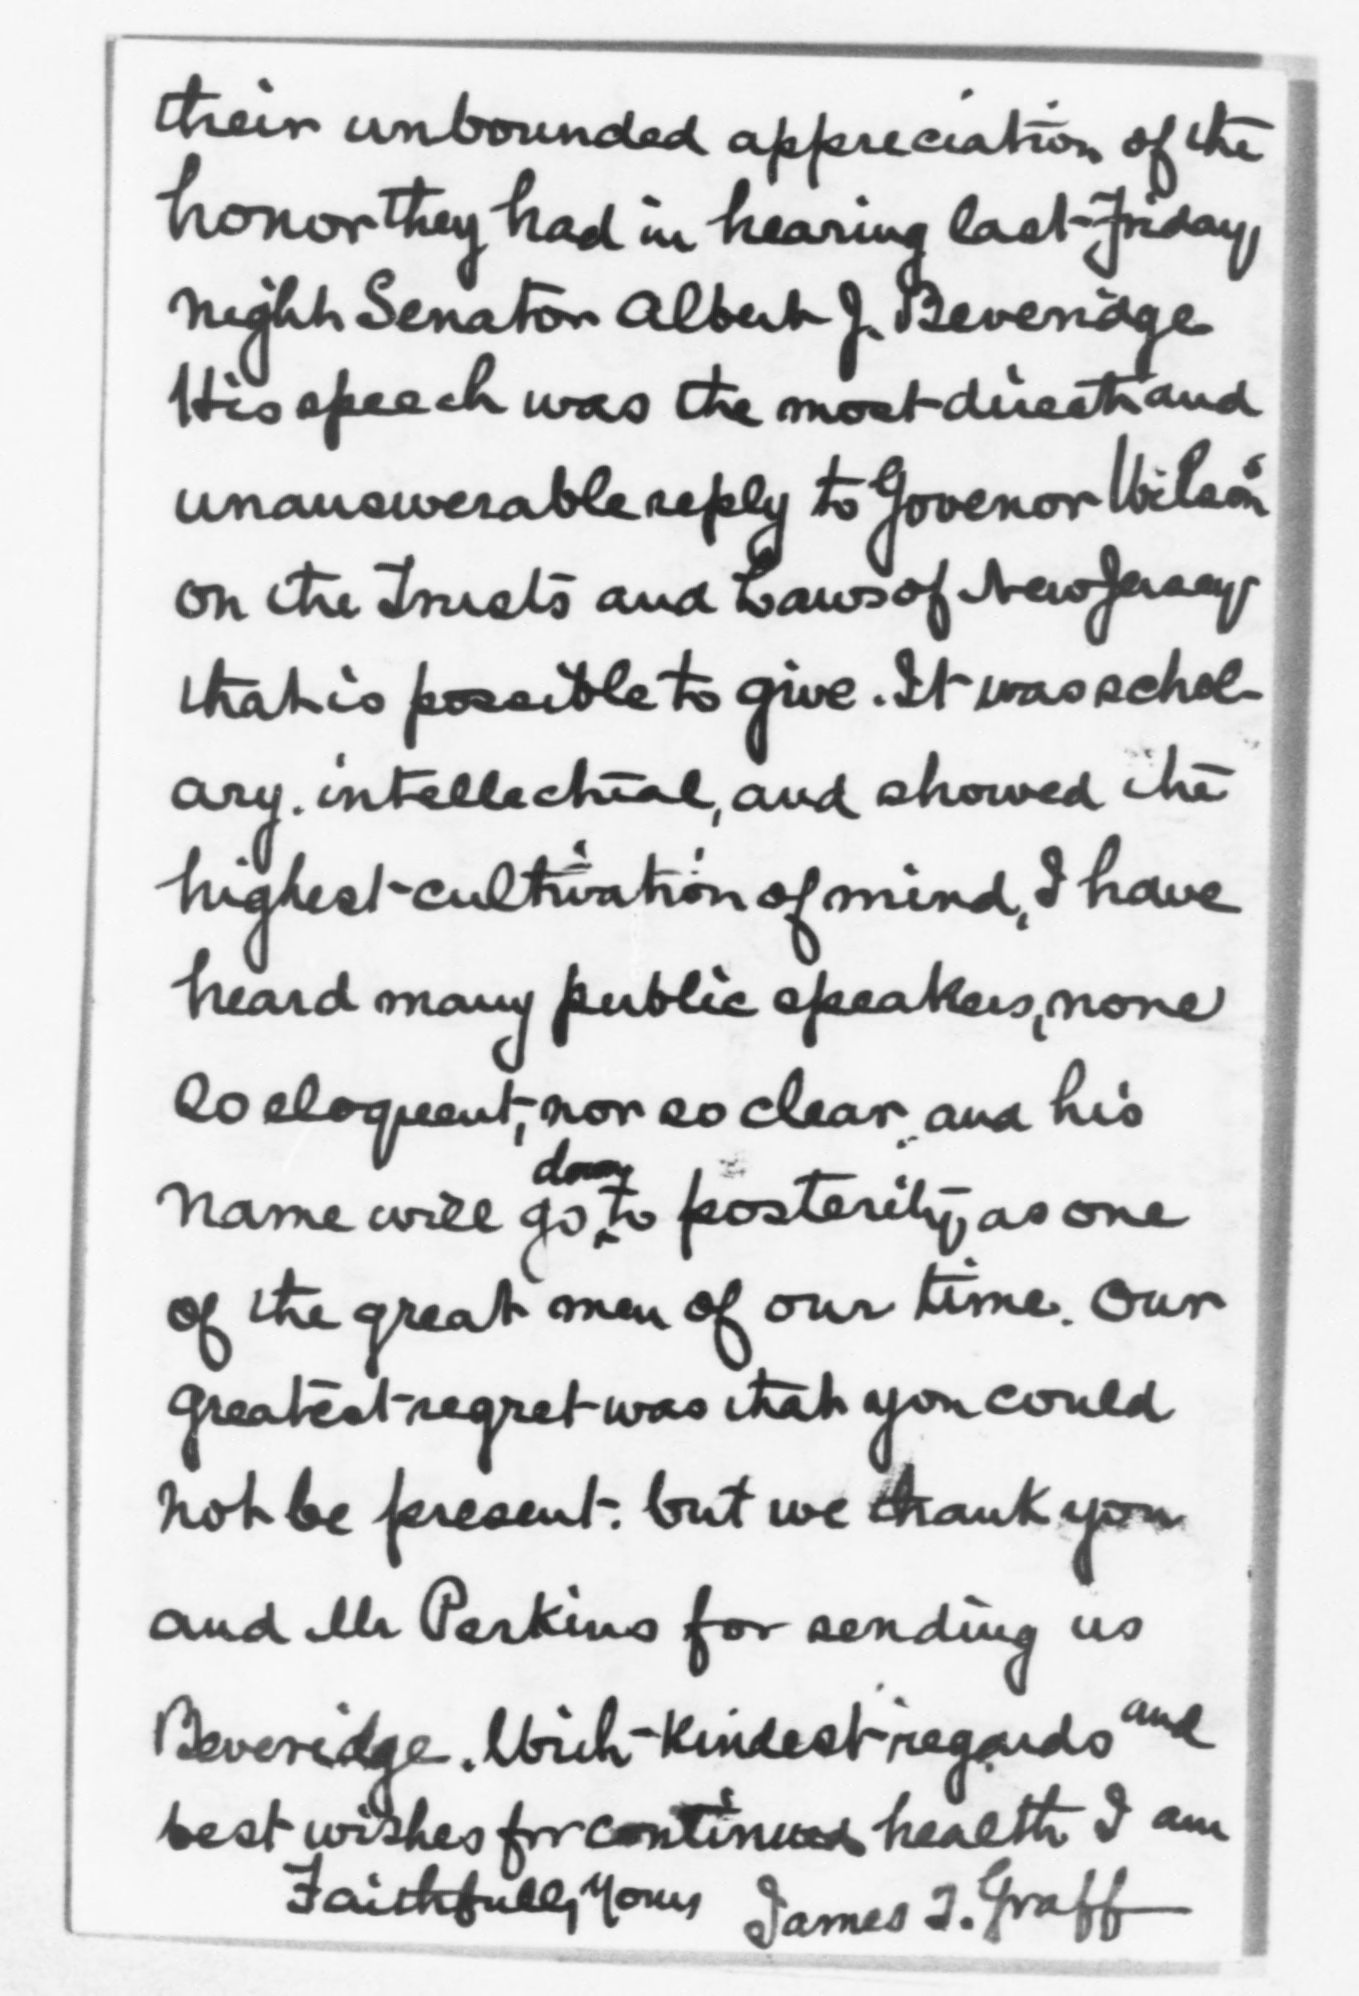 their unbounded appreciation of the
honor they had in hearing last Friday
night Senator Albert J. Beveridge
His speech was the most direct and
unanswerable reply to Govenor Wilson
on the Trusts and Laws of New Jersey
that is possible to give. It was schol-
ary. intellectual, and showed the
highest cultivation of mind, I have
heard many public speakers, none
so eloquent, nor so clear, and his
down
name will go to posterity, as one
of the great men of our time. Our
greatest regret was that you could
not be present. but we thank you
and Mr Perkins for sending us
Beveridge. With kindest regards and
best wishes for continued health I am
Faithfully Yours James T. Graff